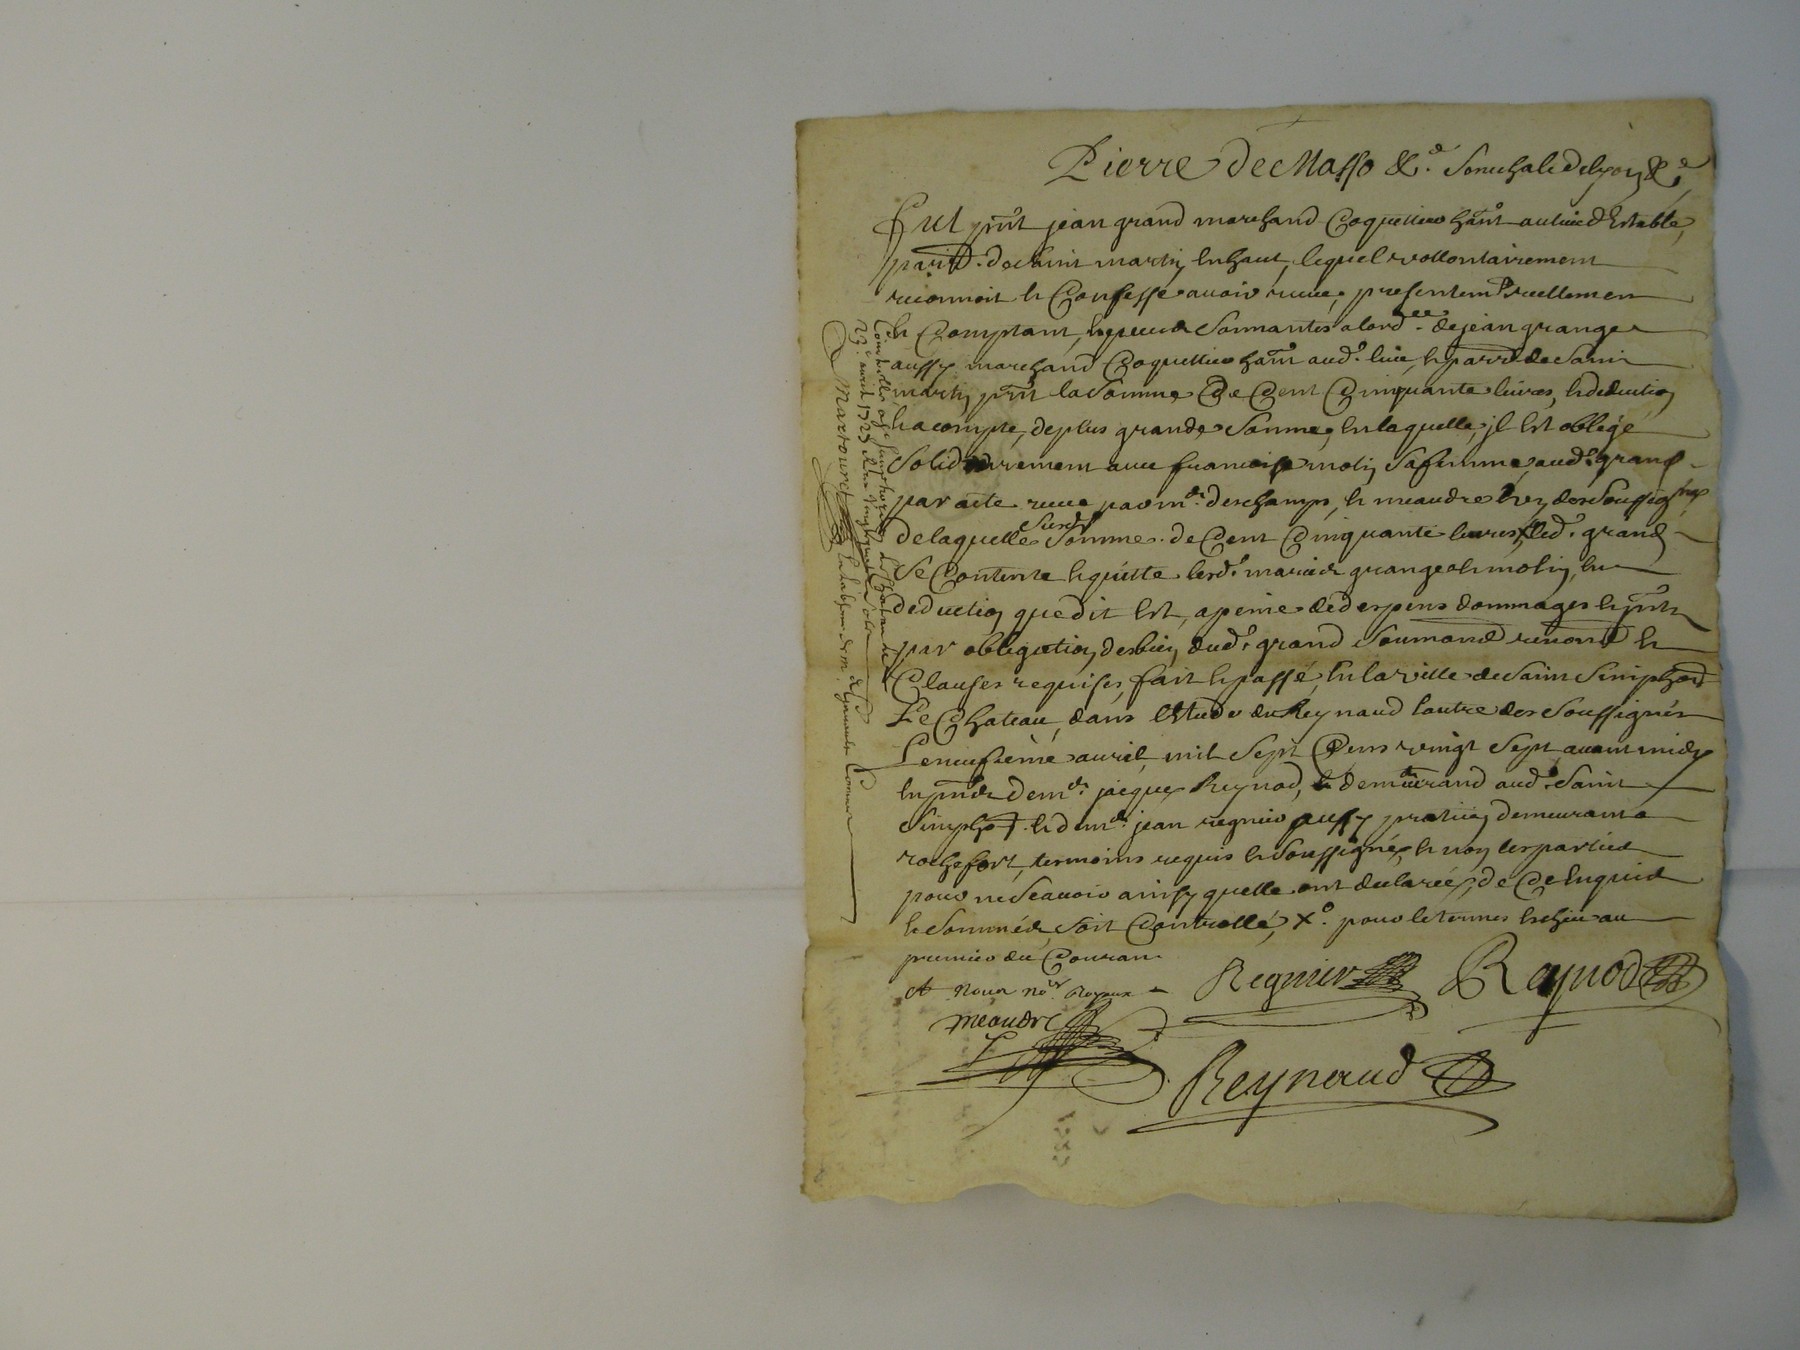 Pierre de Masso &c.ᵃ Senechal de Lyon &c.ᵃ
Fut pñt jean grand marchand Coquettier hañt au lieu d'Estable,
parr. de saint martin En haut, lequel vollontairement
reconnoit et Confesse avoir receu, presentemᵗ reellemen
et Comptant, En especes sonnantes de jean grange
aussy marchand Coquettier hañt aud.ᵗ lieu, et parr. de saint
martin pñt la somme De Cent Cinquante livres, En deduction
Et acompte, de plus grande somme, En laquelle, jl Est obligé
solidairement avec francoise molin sa femme, aud.ᵗ grand
par acte receu par mᵉ. deschamps, et meaudre l'un des soussignés
de laquelle somme de Cent Cinquante livres, led.ᵗ grand
Se Contente et quitte lesd.ᵗ mariés grange et molin, En
deduction que dit Est, a peine de despens dommages et
par obligation des biens dud.ᵗ grand
Clauses requises, fait et passé, En la ville de saint Simphorᵈ
Le Chateau, dans l'Etude de Reynaud l'autre des soussignés
Le neufvieme avril, mil sept Cens vingt sept, avant midy
En pñce de mᵉ. jacques Reynod, demeurand aud. saint
Simpho. et de mᵉ. jean regnier aussy praticien demeurant a
rochefort, temoins requis et soussignés, et non les parties
pour ne sçavoir ainsy quelle ont declarées, de Ce Enquis
et sommés, soit Controllé, Xᵒ. pour le termes Escheu au
premier du Couran
Regnier Reynod
Et nous noʳᵉˢ Royaux
meaudre
Reynaud
Controllé a st
avril 1727
Martouret